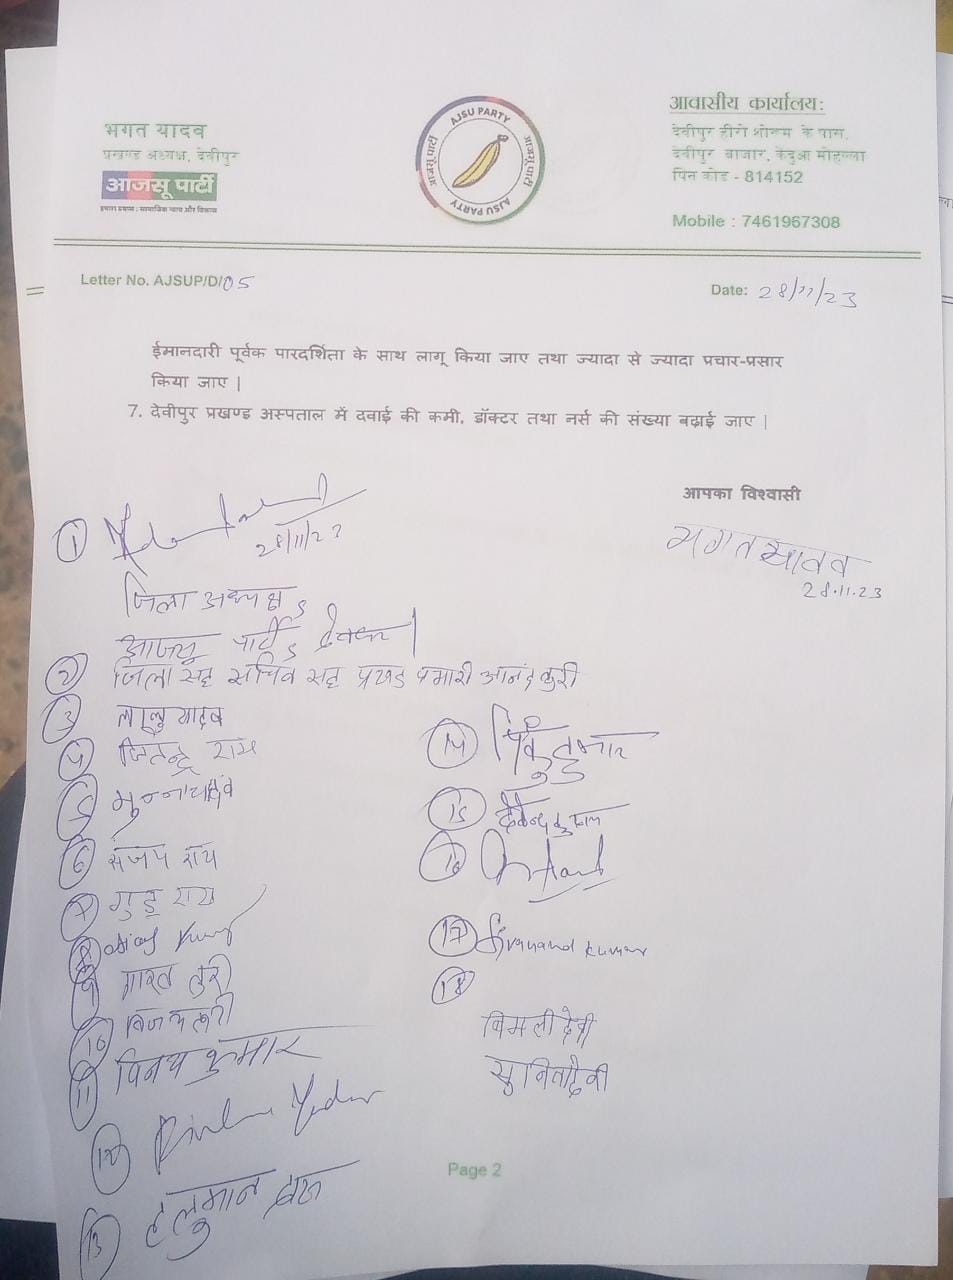 भगत यादव
प्रखण्ड अध्यक्ष, देवीपुर
आजसू पार्टी
हमारा प्रयास : सामाजिक न्याय और विकास
AJSU PARTY
आजसू पार्टी
आजसू पार्टी
AJSU PARTY
आवासीय कार्यालय:
देवीपुर हीरो शोरूम के पास,
देवीपुर बाजार, केंदुआ मोहल्ला
पिन कोड - 814152
Mobile : 7461967308
Letter No. AJSUP/D/05
Date: 28/11/23
ईमानदारी पूर्वक पारदर्शिता के साथ लागू किया जाए तथा ज्यादा से ज्यादा प्रचार-प्रसार
किया जाए |
7. देवीपुर प्रखण्ड अस्पताल में दवाई की कमी, डॉक्टर तथा नर्स की संख्या बढ़ाई जाए |
आपका विश्वासी
भगत यादव
28.11.23
1
28/11/23
जिला अध्यक्ष
आजसू पार्टी, देवघर
2 जिला सह सचिव सह प्रखंड प्रभारी आनंद तुरी
3 लालू यादव
4 जितेन्द्र राय
5
6 संजय राय
7 गुडू राय
8
9 भारत तुरी
10 विजय तुरी
11 विनय कुमार
12 Yadav
13 हनुमान
14 कुमार
15 देवेन्द्र कुमार
16
17 kumar
18
विमली देवी
सुनिता देवी
Page 2